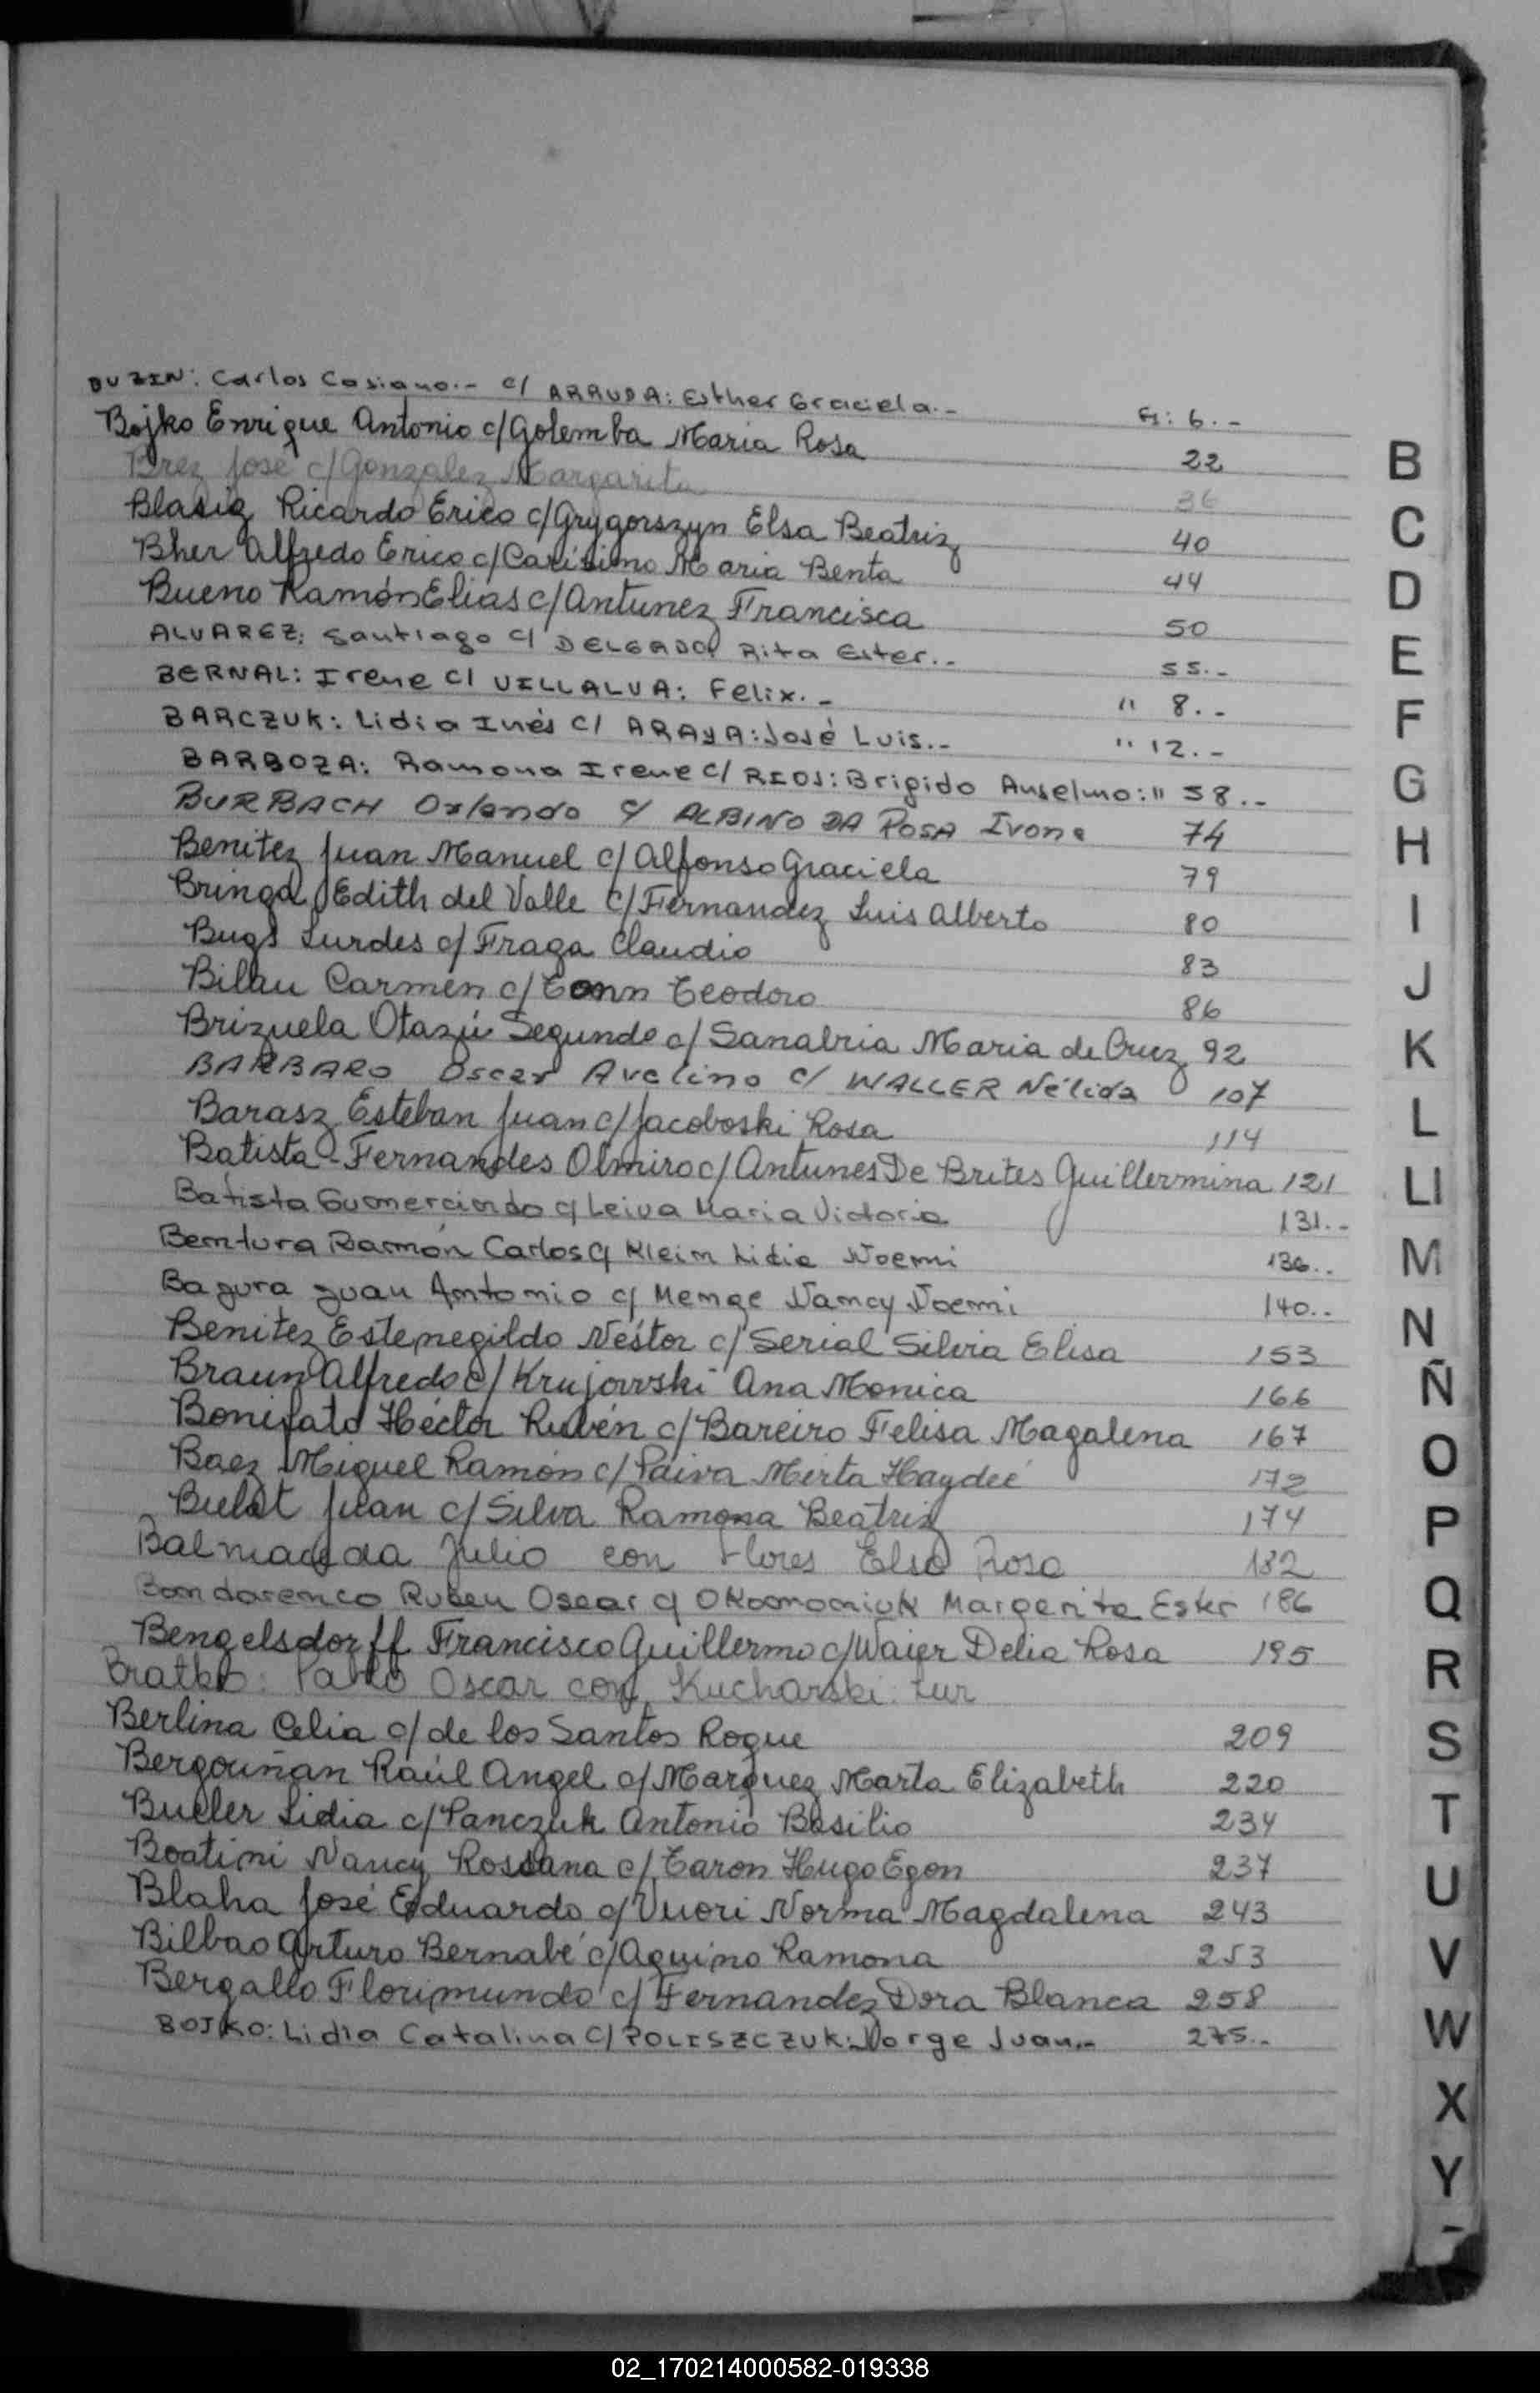 BUZIN: Carlos Casiano.- c/ ARRUDA: Esther Graciela.- Fº: 6.-
Bojko Enrique Antonio c/Golemba Maria Rosa 22
Brez José c/Gonzalez Margarita 36
Blasig Ricardo Erico c/Grygorszyn Elsa Beatriz 40
Bher Alfredo Erico c/Carísimo Maria Benta 44
Bueno Ramón Elias c/Antunez Francisca 50
ALVAREZ: Santiago c/ DELGADO: Rita Ester.- 55.-
BERNAL: Irene c/ VILLALVA: Felix.- " 8.-
BARCZUK: Lidia Inés c/ ARAYA: José Luis.- " 12.-
BARBOZA: Ramona Irene c/ RIOS: Brigido Anselmo: " 58.-
BURBACH Orlando c/ ALBINO DA ROSA Ivone 74
Benitez Juan Manuel c/Alfonso Graciela 79
Bringa Edith del Valle c/Fernandez Luis Alberto 80
Bugs Lurdes c/Fraga Claudio 83
Bilau Carmen c/Tonn Teodoro 86
Brizuela Otazú Segundo c/Sanabria Maria de Cruz 92
BARBARO Oscar Avelino c/ WALLER Nélida 107
Barasz Esteban Juan c/Jacoboski Rosa 114
Batista-Fernandes Olmiro c/Antunes De Brites Guillermina 121
Batista Gumercindo c/ Leiva Maria Victoria 131..
Bentura Ramón Carlos c/ Klein Lidia Noemi 136..
Bagura Juan Antonio c/ Menge Nancy Noemi 140..
Benitez Estenegildo Néstor c/Serial Silvia Elisa 153
Braun Alfredo c/Krujovski Ana Monica 166
Bonifato Héctor Rubén c/Bareiro Felisa Magalena 167
Baez Miguel Ramón c/Paiva Mirta Haydeé 172
Bulat Juan c/Silva Ramona Beatriz 174
Balmaceda Julio con Flores Elsa Rosa 182
Bondarenco Ruben Oscar c/ Margarita Ester 186
Bengelsdorff Francisco Guillermo c/Waier Delia Rosa 195
Bratko: Pablo Oscar con Kucharski: Lur
Berlina Celia c/de los Santos Roque 209
Bergouñan Raúl Angel c/Marquez Marta Elizabeth 220
Bueler Lidia c/Panczuk Antonio Basilio 234
Boatini Nancy Rossana c/Taron Hugo Egon 237
Blaha José Eduardo c/Vuori Norma Magdalena 243
Bilbao Arturo Bernabé c/Aquino Ramona 253
Bergallo Florimundo c/Fernandez Dora Blanca 258
BOJKO: Lidia Catalina c/ POLISZCZUK: Jorge Juan.- 275..
B
C
D
E
F
G
H
I
J
K
L
Ll
M
N
Ñ
O
P
Q
R
S
T
U
V
W
X
Y
02_170214000582-019338